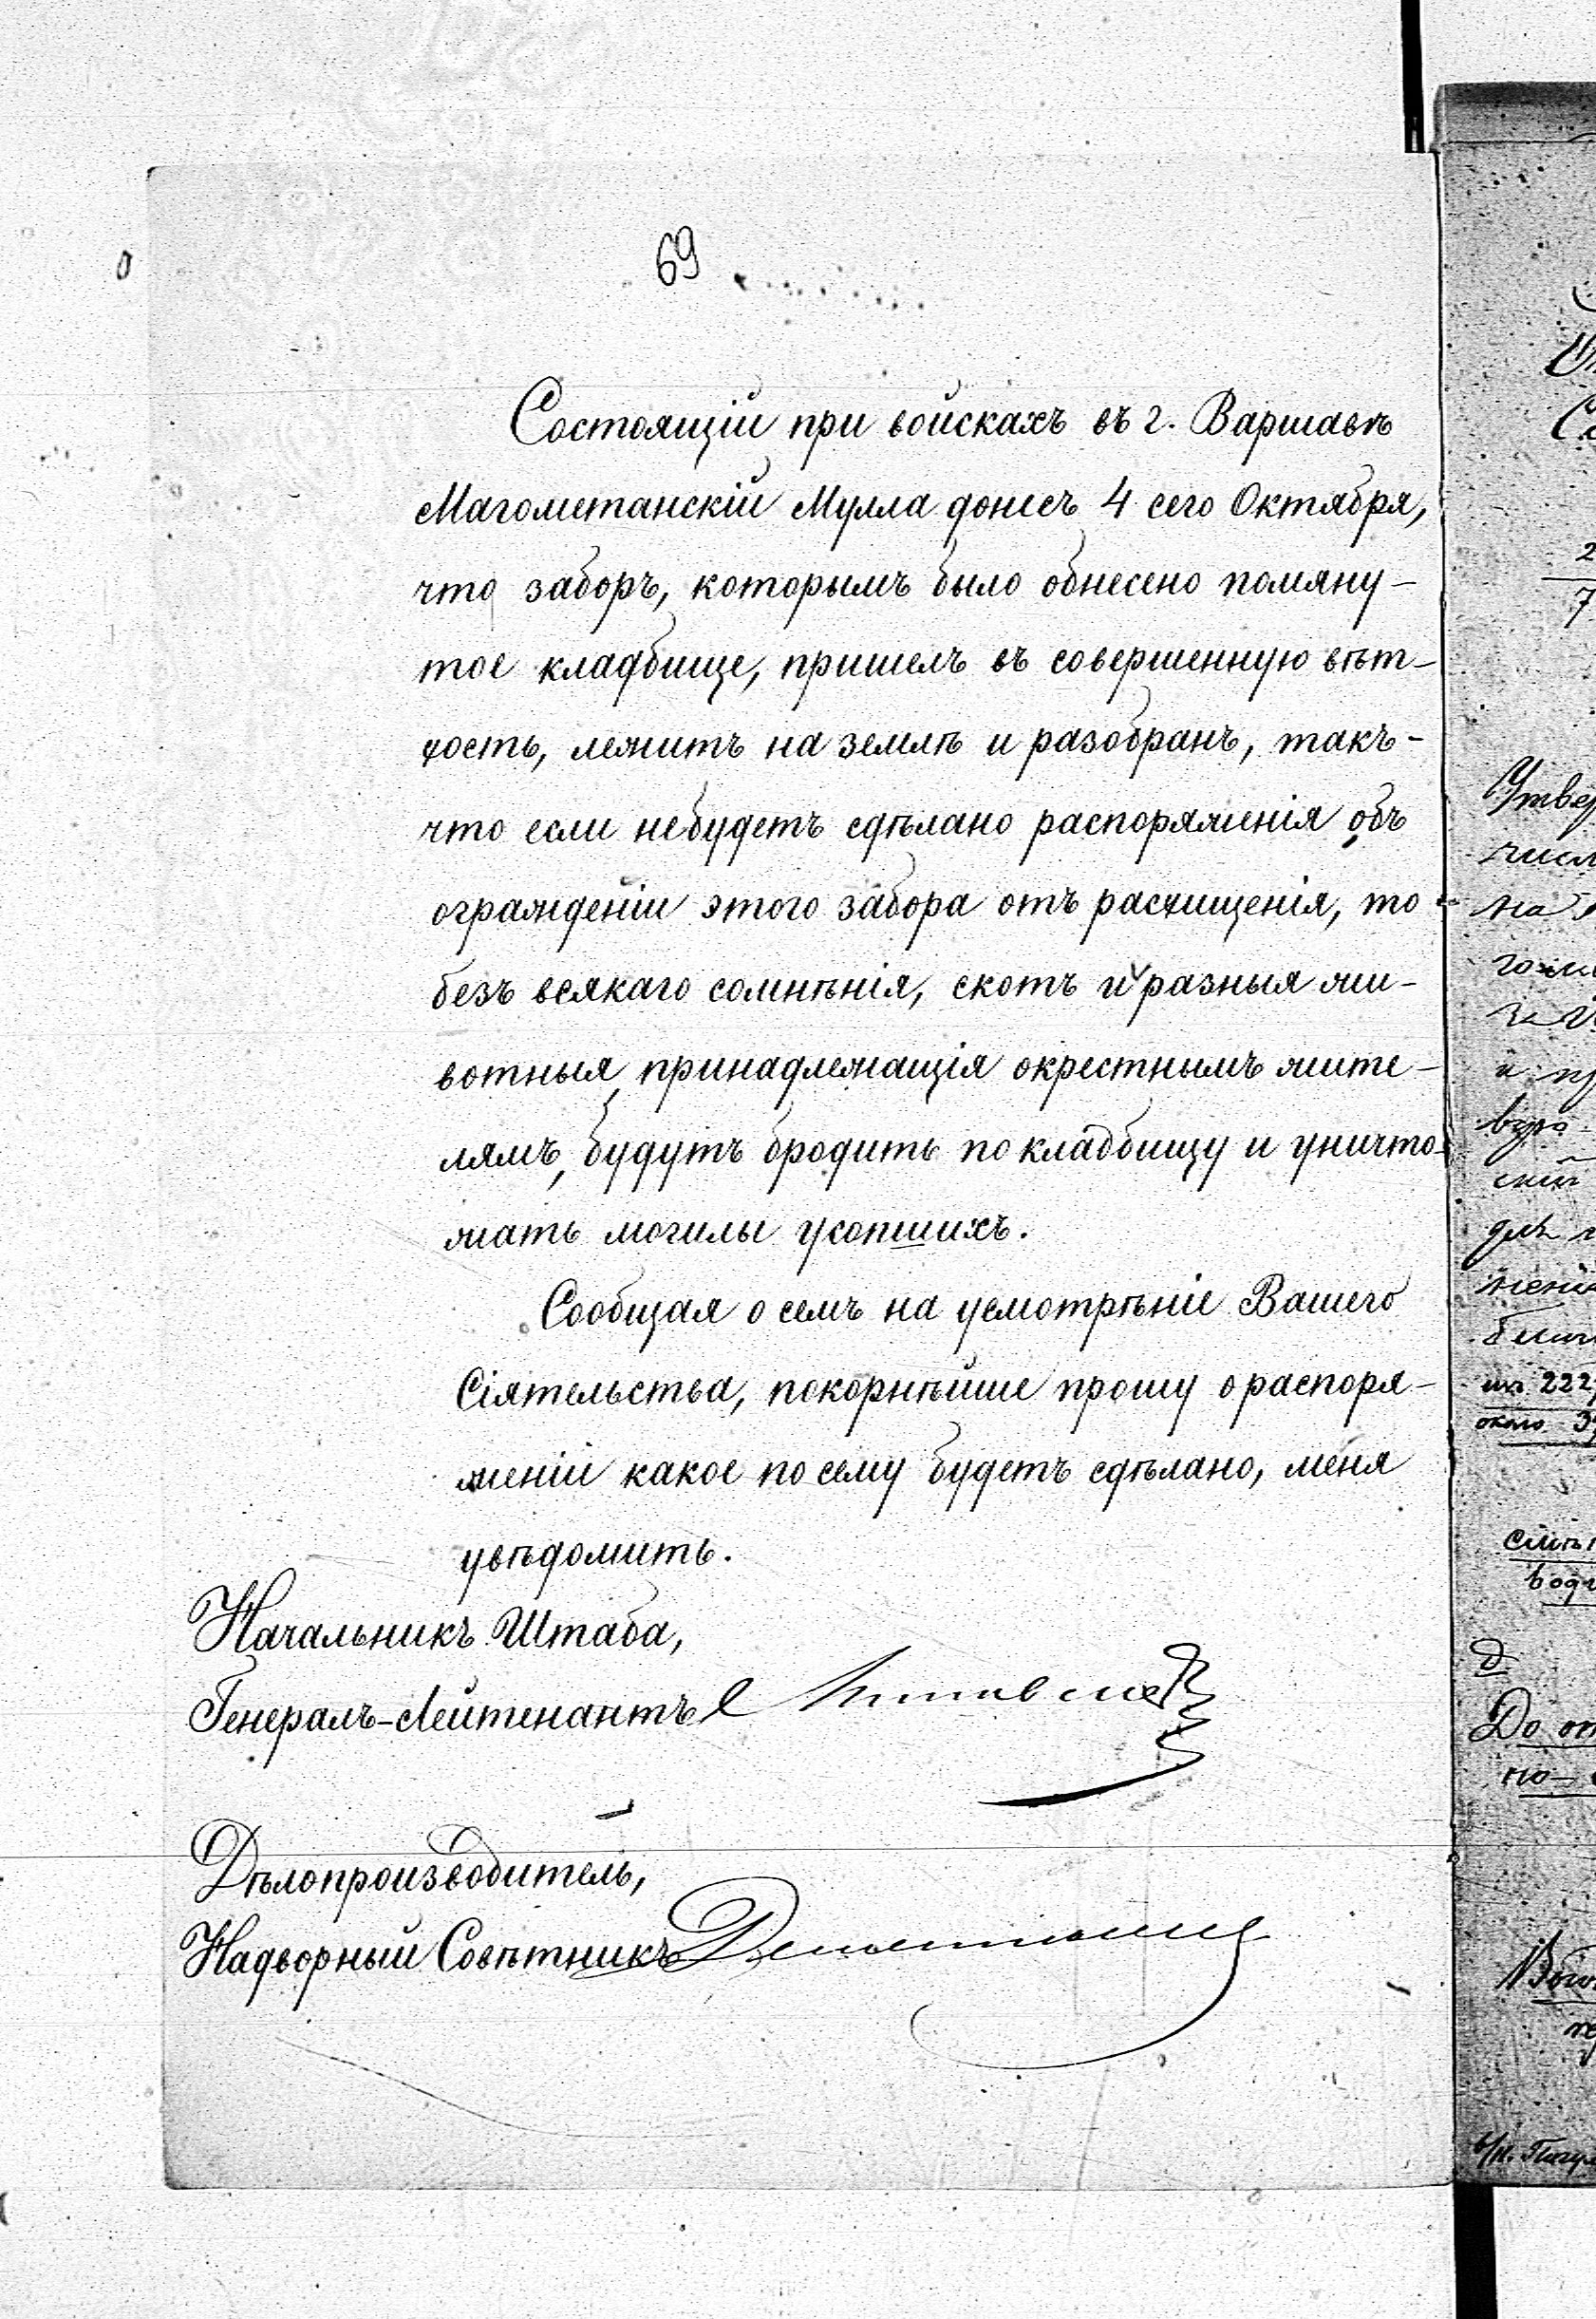 69
Состоящій при войскахъ въ г. Варшавѣ
Магометанскій Мулла донесъ 4 сего Октября,
что заборъ, которымъ было обнесено помяну-
тое кладбище, пришелъ въ совершенную вѣт-
хость, лежитъ на землѣ и разобранъ, такъ-
что если небудетъ сдѣлано распоряженія объ
огражденіи этого забора отъ расхищенія, то
безъ всякаго сомнѣнія, скотъ и разныя жи-
вотныя, принадлежащія окрестнымъ жите-
лямъ, будутъ бродить по кладбищу и уничто-
жать могилы усопшихъ.
Сообщая о семъ на усмотрѣніе Вашего
Сіятельства, покорнѣйше прошу о распоря-
женіи какое по сему будетъ сдѣлано, меня
увѣдомить.
Начальникъ Штаба,
Генералъ-Лейтенантъ
Дѣлопроизводитель,
Надворный Совѣтникъ